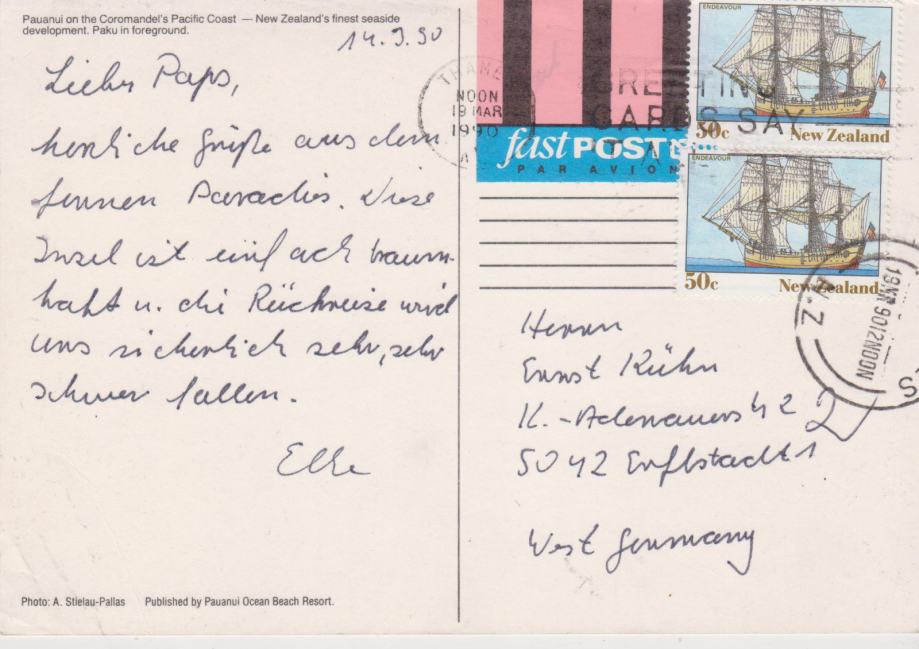 Pauanui on the Coromandel's Pacific Coast — New Zealand's finest seaside
development. Paku in foreground.
14.3.90
Lieber Paps,
herzliche Grüße aus dem
fernen Paradies. Diese
Insel ist einfach traum-
haft u. die Rückreise wird
uns sicherlich sehr, sehr
schwer fallen.
Elke
Photo: A. Stielau-Pallas Published by Pauanui Ocean Beach Resort.
THAMES
NOON
19 MAR
1990
GREETING
CARDS SAY
fastPOST
PAR AVION
ENDEAVOUR
50c New Zealand
ENDEAVOUR
50c New Zealand
19MR9012NOON
N.Z
Herrn
Ernst Kühn
K.-Adenauerstr 22
5042 Erftstadt 1
West Germany